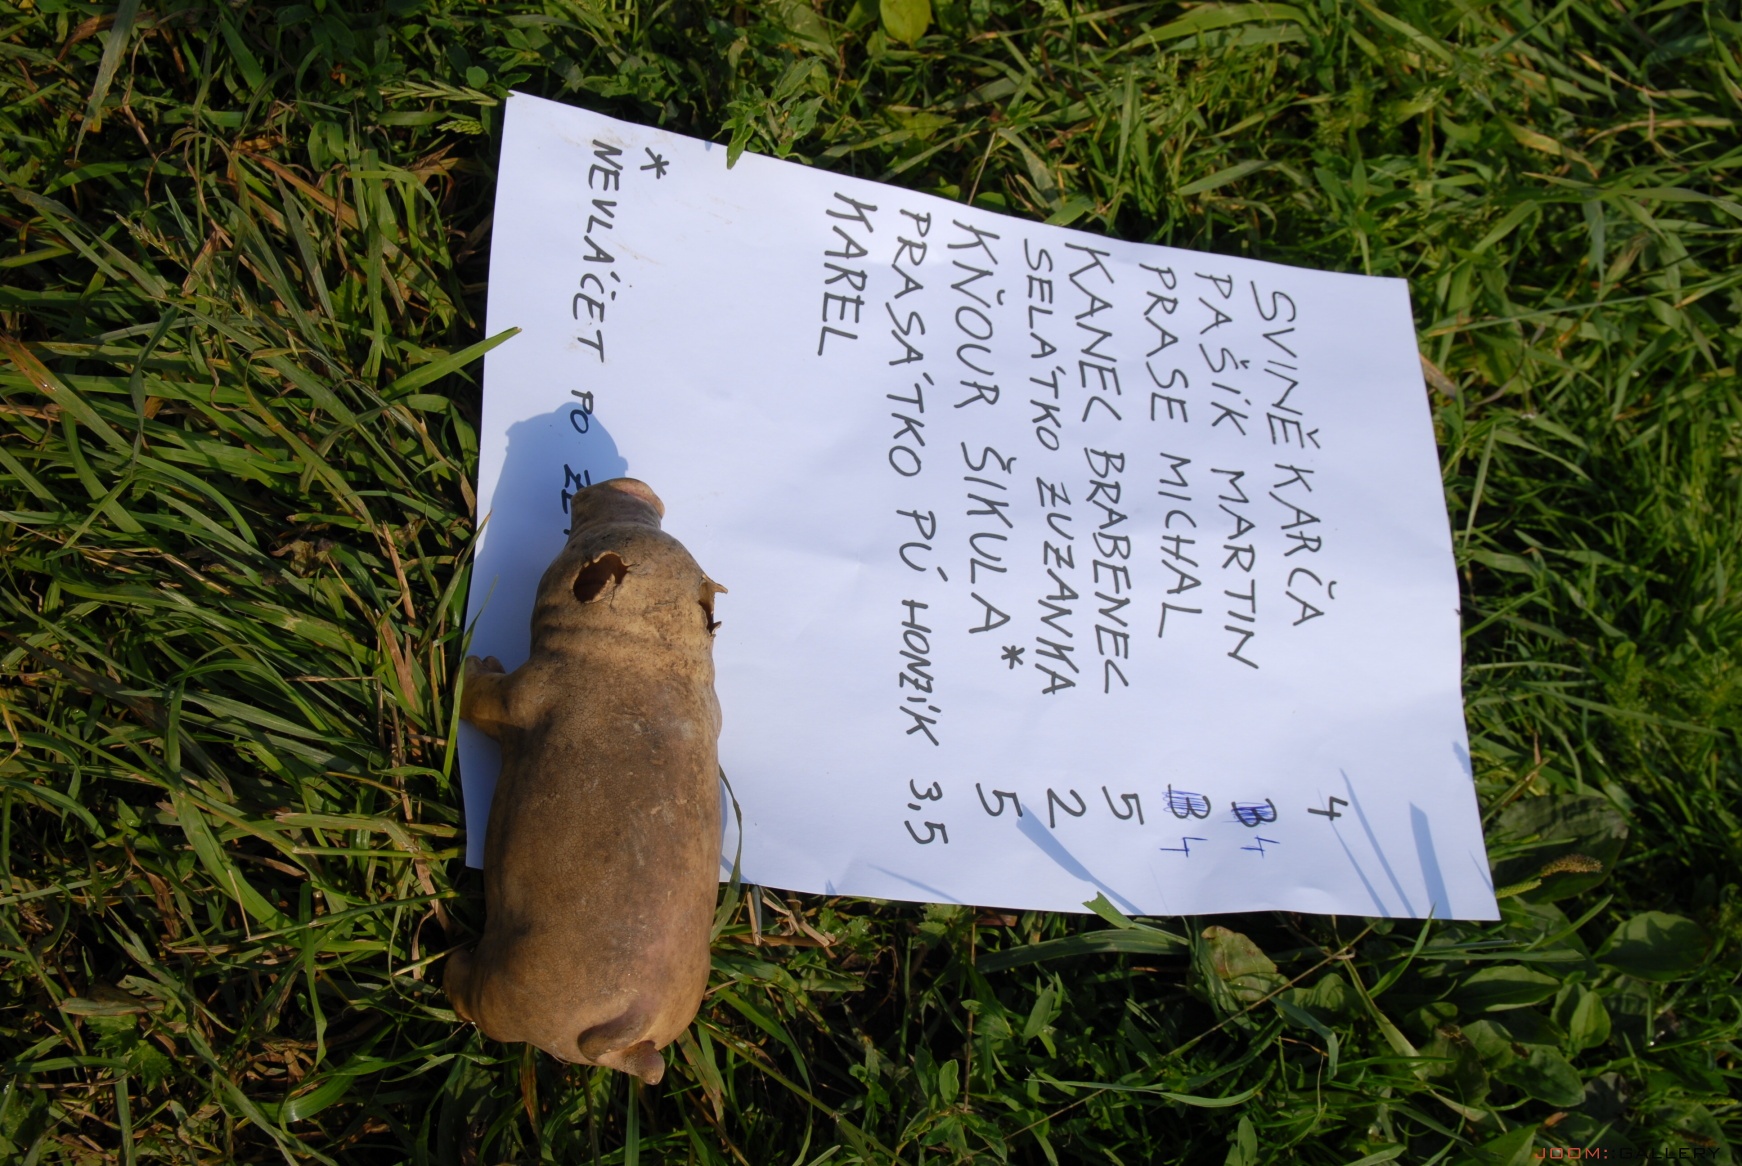 SVINĚ KARČA 4
PAŠÍK MARTIN 4
PRASE MICHAL 4
KANEC BRABENEC 5
SELÁTKO ZUZANKA 2
KŇOUR ŠIKULA* 5
PRASÁTKO PÚ HONZÍK 3,5
KAREL
* NEVLÁČET PO
JOOM::GALLERY